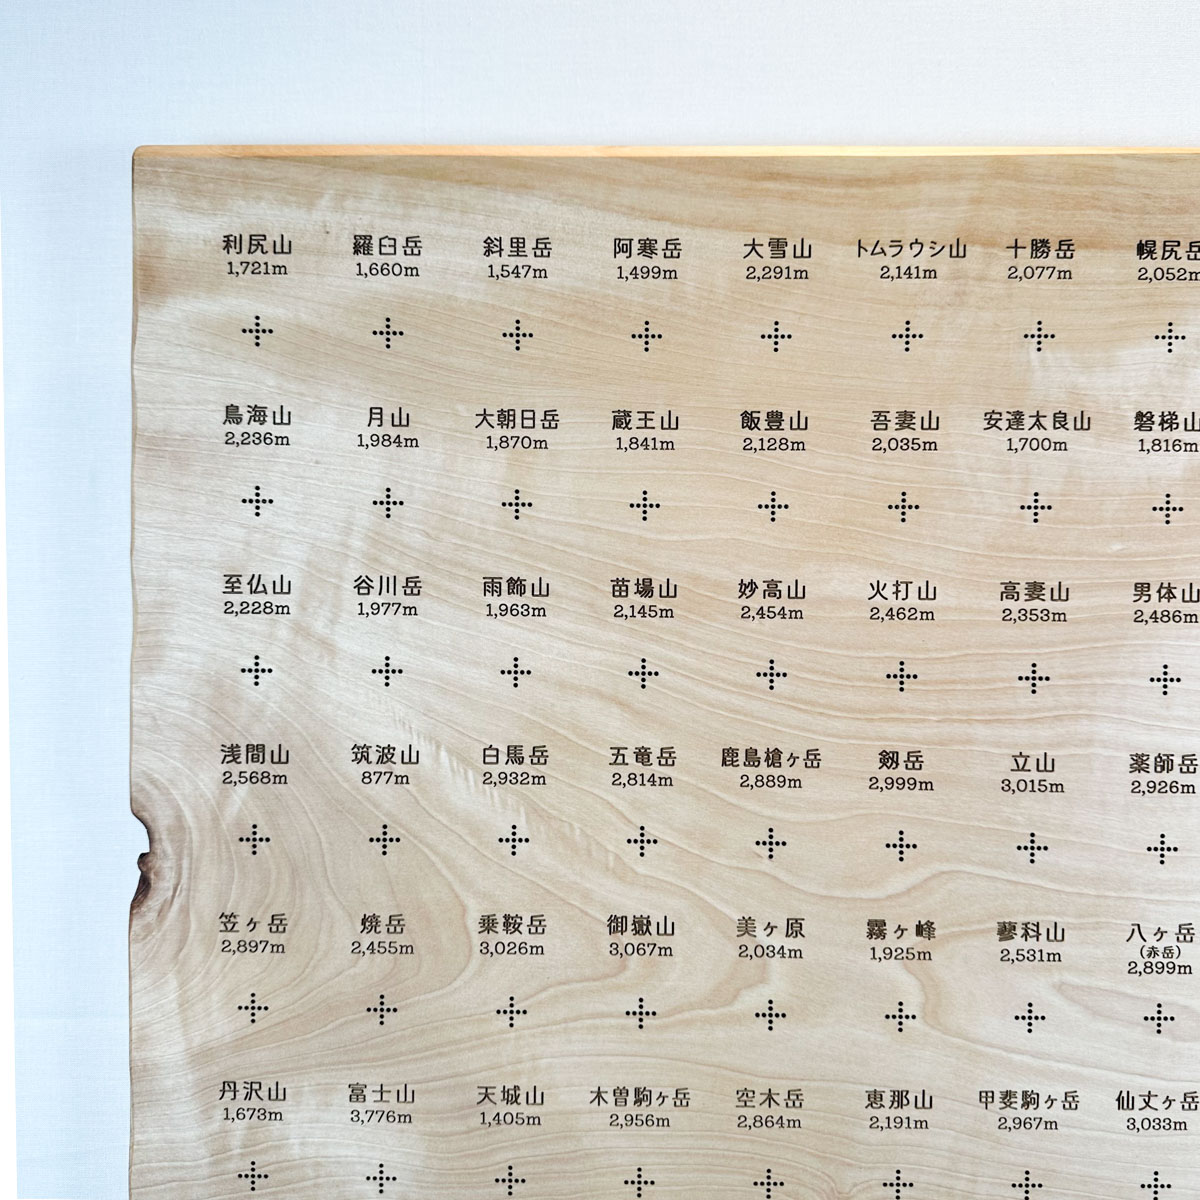 利尻山 羅臼岳 斜里岳 阿寒岳 大雪山 トムラウシ山 十勝岳 幌尻岳
1,721m 1,660m 1,547m 1,499m 2,291m 2,141m 2,077m 2,052m
鳥海山 月山 大朝日岳 蔵王山 飯豊山 吾妻山 安達太良山 磐梯山
2,236m 1,984m 1,870m 1,841m 2,128m 2,035m 1,700m 1,816m
至仏山 谷川岳 雨飾山 苗場山 妙高山 火打山 高妻山 男体山
2,228m 1,977m 1,963m 2,145m 2,454m 2,462m 2,353m 2,486m
浅間山 筑波山 白馬岳 五竜岳 鹿島槍ヶ岳 剱岳 立山 薬師岳
2,568m 877m 2,932m 2,814m 2,889m 2,999m 3,015m 2,926m
笠ヶ岳 焼岳 乗鞍岳 御嶽山 美ヶ原 霧ヶ峰 蓼科山 八ヶ岳
(赤岳)
2,897m 2,455m 3,026m 3,067m 2,034m 1,925m 2,531m 2,899m
丹沢山 富士山 天城山 木曽駒ヶ岳 空木岳 恵那山 甲斐駒ヶ岳 仙丈ヶ岳
1,673m 3,776m 1,405m 2,956m 2,864m 2,191m 2,967m 3,033m